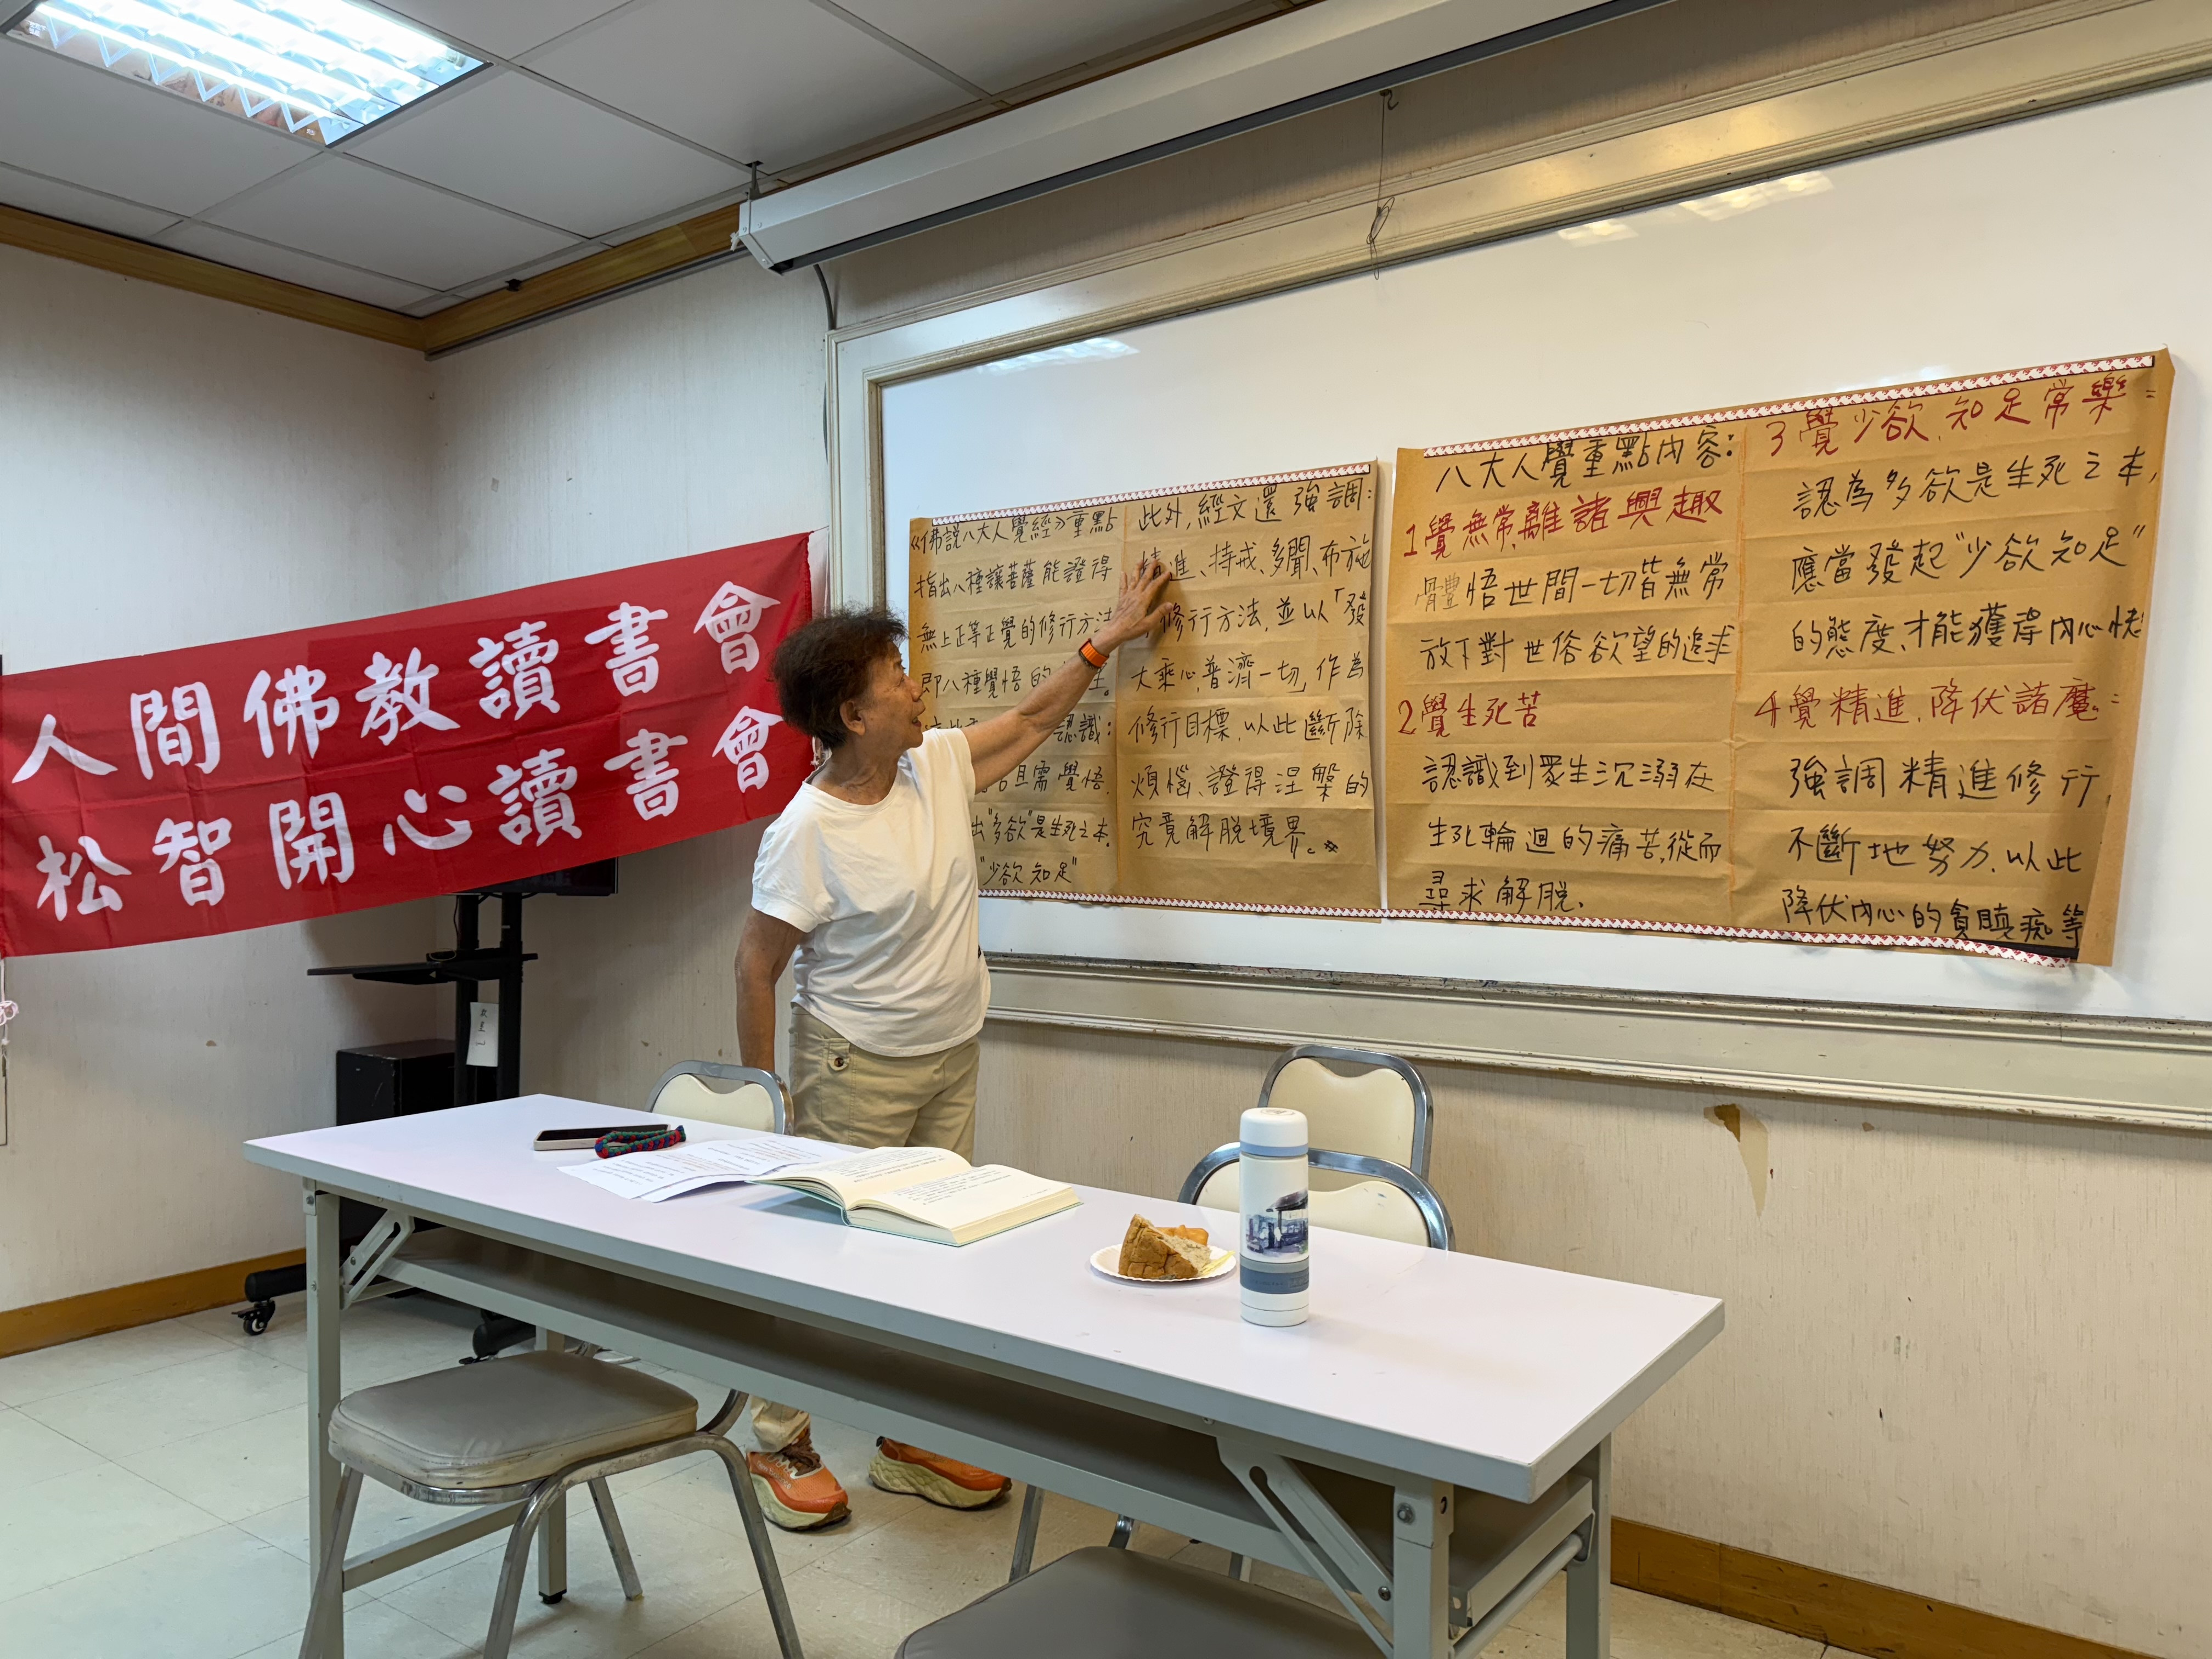 人間佛教讀書會
松智開心讀書會
《佛説八大人覺經》重點
指出八種讓菩薩能證得
無上正等正覺的修行方法
即八種覺悟的
認識:
且需覺悟.
出"多欲"是生死之本.
"少欲知足"
此外,經文還強調:
精進、持戒、多聞、布施
修行方法,並以「發
大乘心,普濟一切」作為
修行目標,以此斷除
煩惱、證得涅槃的
究竟解脫境界。#
八大人覺重點內容:
1覺無常,離諸興趣
體悟世間一切皆無常
放下對世俗欲望的追求
2覺生死苦
認識到眾生沉溺在
生死輪迴的痛苦,從而
尋求解脫.
3覺少欲,知足常樂:
認為多欲是生死之本,
應當發起"少欲知足"
的態度,才能獲得內心
4覺精進,降伏諸魔:
強調精進修行,
不斷地努力,以此
降伏內心的貪瞋痴等